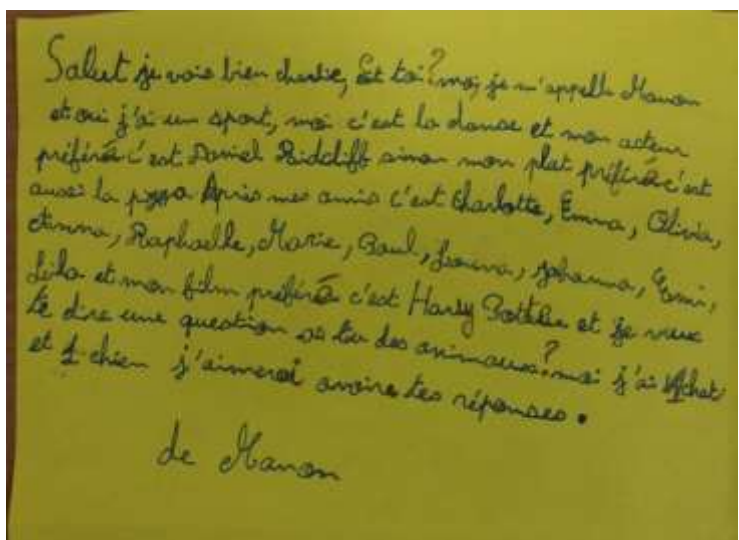 Salut je vais bien charlie, Et toi? moi je m'appelle Manon
et oui j'ai un sport, moi c'est la danse et mon acteur
préféré c'est Daniel Ridcliff sinon mon plat préféré c'est
aussi la pizza Après mes amis c'est Charlotte, Emma, Olivia,
Anna, Raphaelle, Marie, Paul, Johanna, Emi,
et mon film préféré c'est Harry Potter et je veux
te dire une question as tu des animaux? moi j'ai 1 chat
et 1 chien j'aimerai avoire tes réponses.
de Manon